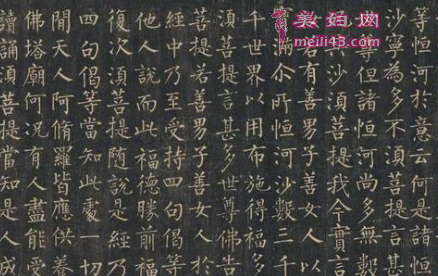 等恒河於意云何是諸恒
沙寧為多不須菩提言甚
等但諸恒河尚多無數
其沙須菩提我今實言
若有善男子善女人以
滿尒所恒河沙數三千
千世界以用布施得福多
須菩提言甚多世尊佛告
菩提若善男子善女人於
經中乃至受持四句偈等
他人說而此福德勝前福
復次須菩提隨說是經乃
四句偈等當知此處一切
間天人阿脩羅皆應供養
佛塔廟何況有人盡能受
讀誦須菩提當知是人成
美妞网
meili43.com